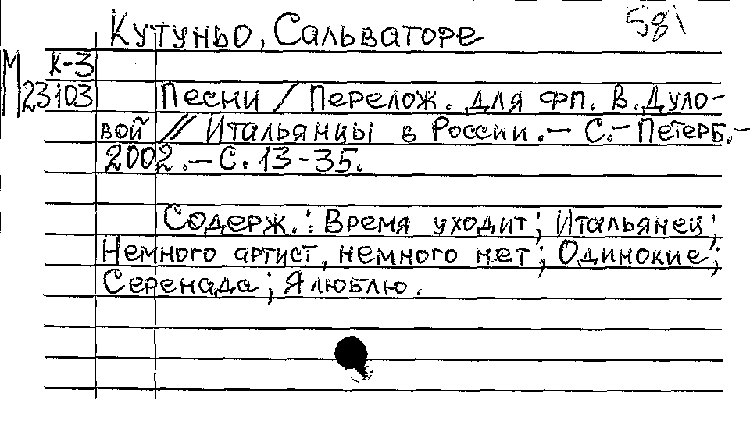 Кутуньо, Сальваторе 581
М К-3
23103 Песни / Перелож. для фп. В. Дуло-
вой // Итальянцы в России. - С.-Петерб. -
2002. - С. 13-35.
Содерж.: Время уходит; Итальянец;
Немного артист, немного нет; Одинокие;
Серенада; Я люблю.